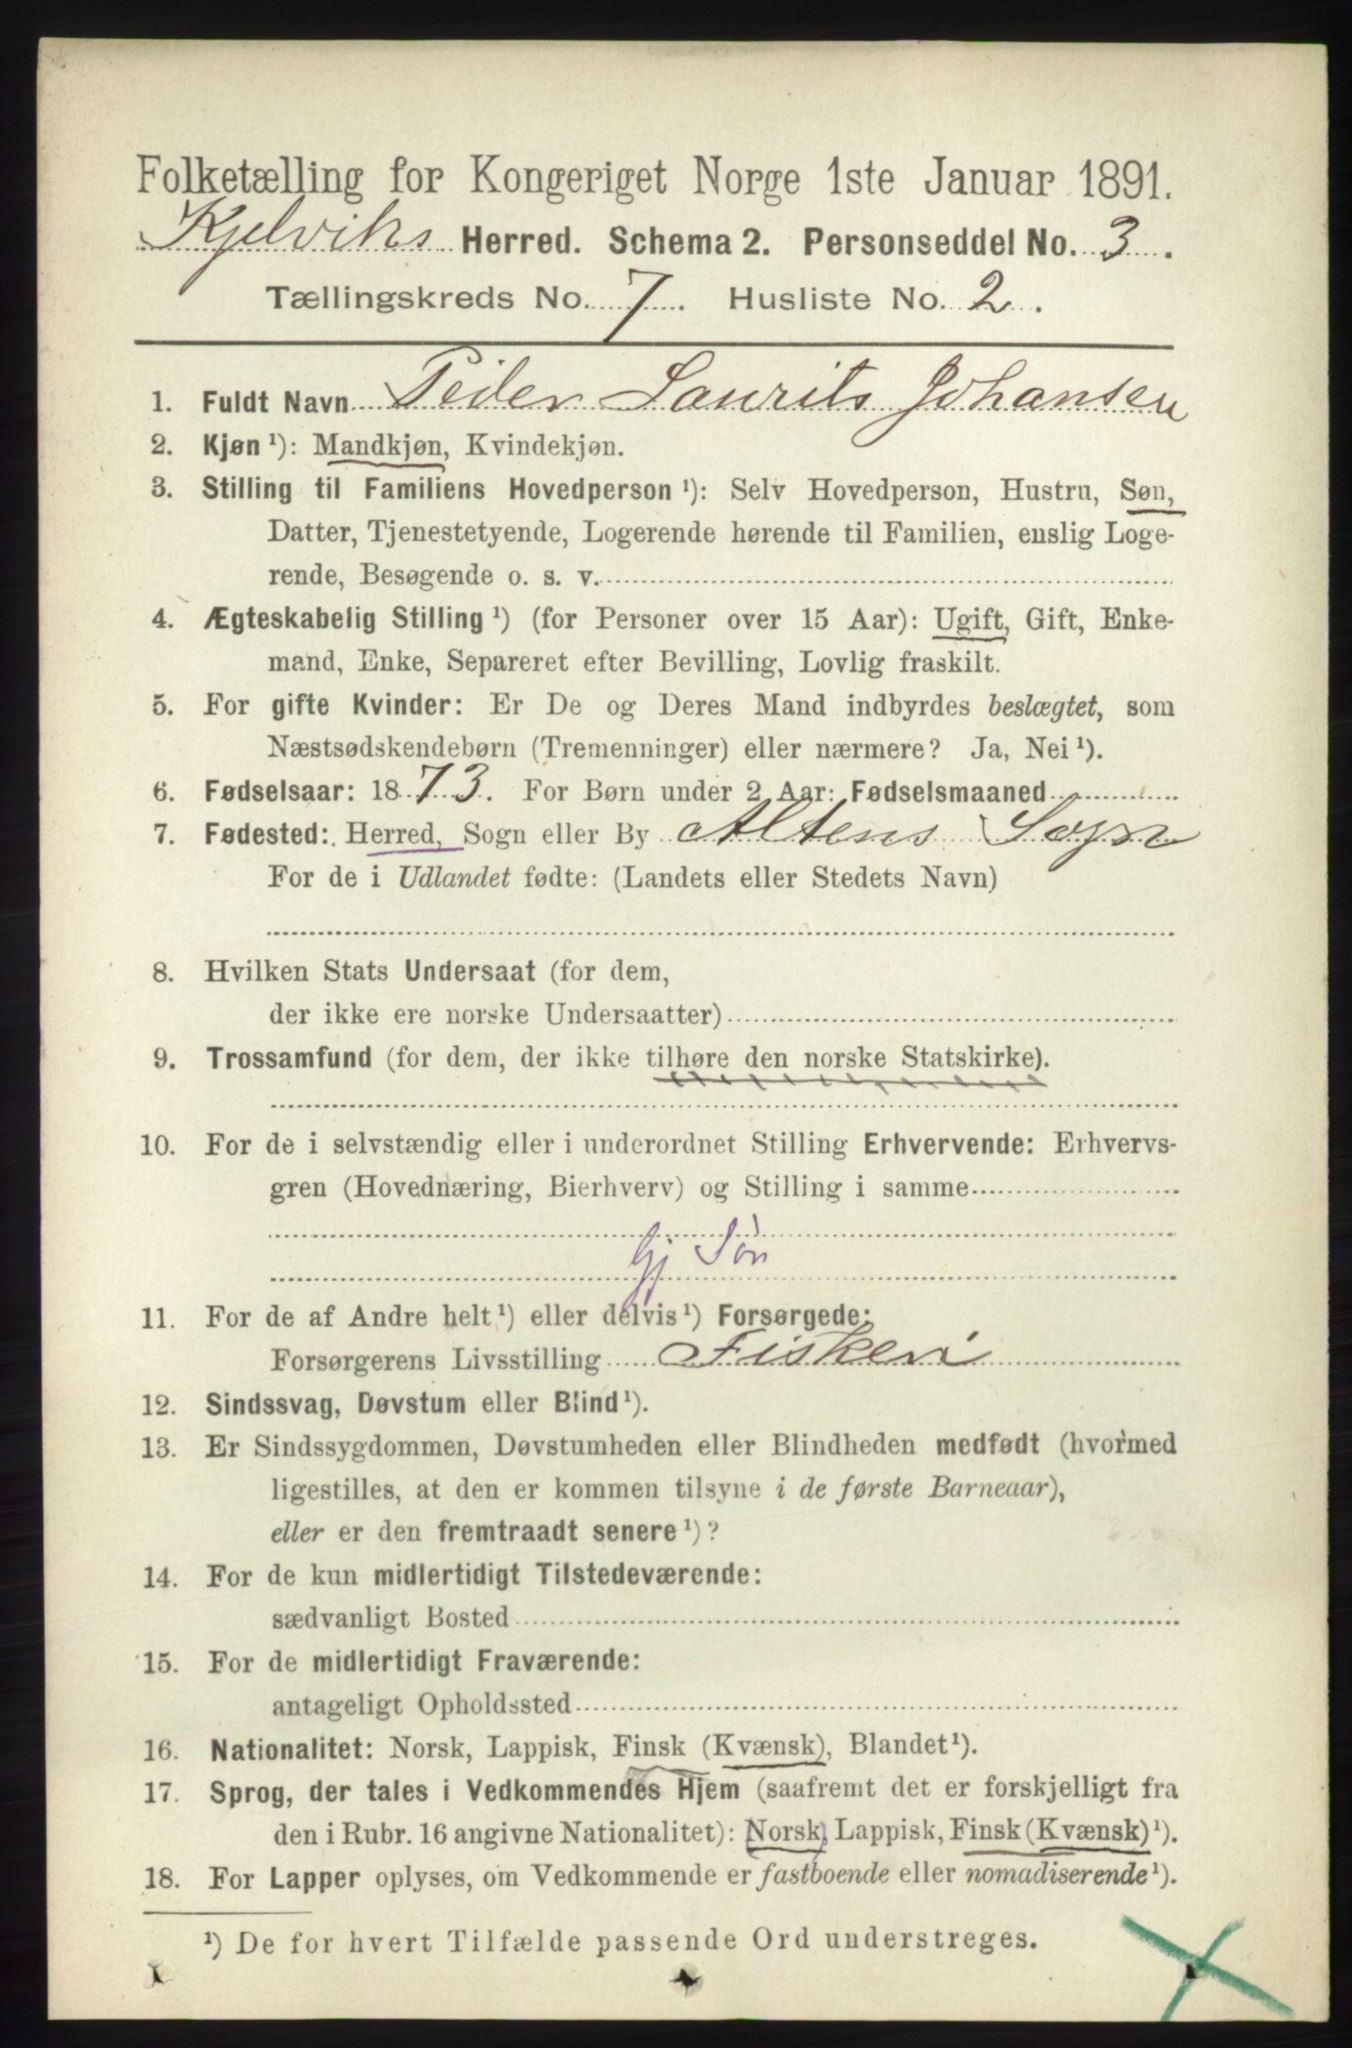 Folketælling for Kongeriget Norge 1ste Januar 1891.
Kjelviks Herred. Schema 2. Personseddel No. 3.
Tællingskreds No. 7. Husliste No. 2.
1. Fuldt Navn Peder Laurits Johansen
2. Kjøn ¹): Mandkjøn, Kvindekjøn.
3. Stilling til Familiens Hovedperson ¹): Selv Hovedperson, Hustru, Søn,
Datter, Tjenestetyende, Logerende hørende til Familien, enslig Loge-
rende, Besøgende o. s. v.
4. Ægteskabelig Stilling ¹) (for Personer over 15 Aar): Ugift, Gift, Enke-
mand, Enke, Separeret efter Bevilling, Lovlig fraskilt.
5. For gifte Kvinder: Er De og Deres Mand indbyrdes beslægtet, som
Næstsødskendebørn (Tremenninger) eller nærmere? Ja, Nei ¹).
6. Fødselsaar: 1873. For Børn under 2 Aar: Fødselsmaaned
7. Fødested: Herred, Sogn eller By Altens Sogn
For de i Udlandet fødte: (Landets eller Stedets Navn)
8. Hvilken Stats Undersaat (for dem,
der ikke ere norske Undersaatter)
9. Trossamfund (for dem, der ikke tilhøre den norske Statskirke).
10. For de i selvstændig eller i underordnet Stilling Erhvervende: Erhvervs-
gren (Hovednæring, Bierhverv) og Stilling i samme
Gj Søn
11. For de af Andre helt ¹) eller delvis ¹) Forsørgede:
Forsørgerens Livsstilling Fiskeri
12. Sindssvag, Døvstum eller Blind ¹).
13. Er Sindssygdommen, Døvstumheden eller Blindheden medfødt (hvormed
ligestilles, at den er kommen tilsyne i de første Barneaar),
eller er den fremtraadt senere ¹)?
14. For de kun midlertidigt Tilstedeværende:
sædvanligt Bosted
15. For de midlertidigt Fraværende:
antageligt Opholdssted
16. Nationalitet: Norsk, Lappisk, Finsk (Kvænsk), Blandet ¹).
17. Sprog, der tales i Vedkommendes Hjem (saafremt det er forskjelligt fra
den i Rubr. 16 angivne Nationalitet): Norsk, Lappisk, Finsk (Kvænsk) ¹).
18. For Lapper oplyses, om Vedkommende er fastboende eller nomadiserende ¹).
¹) De for hvert Tilfælde passende Ord understreges.